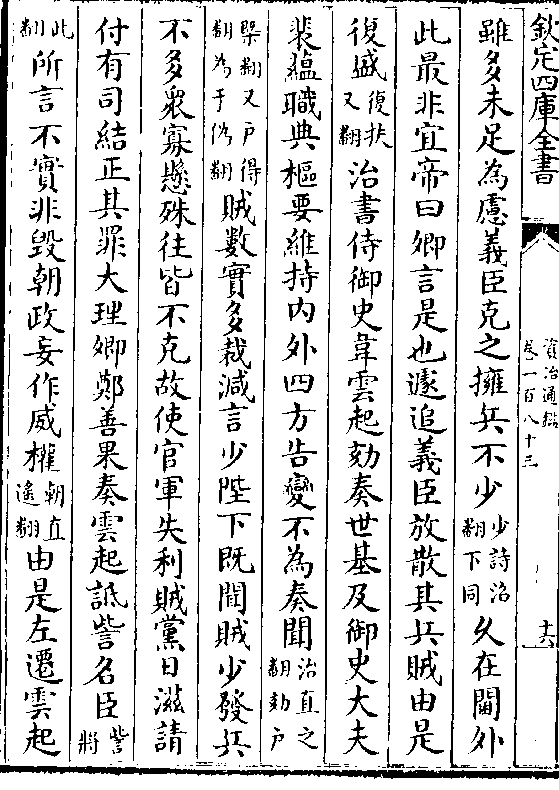 欽定四庫全書
資治通鑑
卷一百八十三
十六
雖多未足為慮義臣克之擁兵不少少詩沼翻下同久在閫外
此最非宜帝曰卿言是也遽追義臣放散其兵賊由是
復盛復扶又翻治書侍御史韋雲起劾奏世基及御史大夫
裴蘊職典樞要維持內外四方告變不為奏聞治直之翻劾戶
槩翻又戶得翻為于偽翻賊數實多裁減言少陛下既聞賊少發兵
不多衆寡懸殊往皆不克故使官軍失利賊黨日滋請
付有司結正其罪大理卿鄭善果奏雲起詆訾名臣訾將
此翻所言不實非毀朝政妄作威權朝直遙翻由是左遷雲起